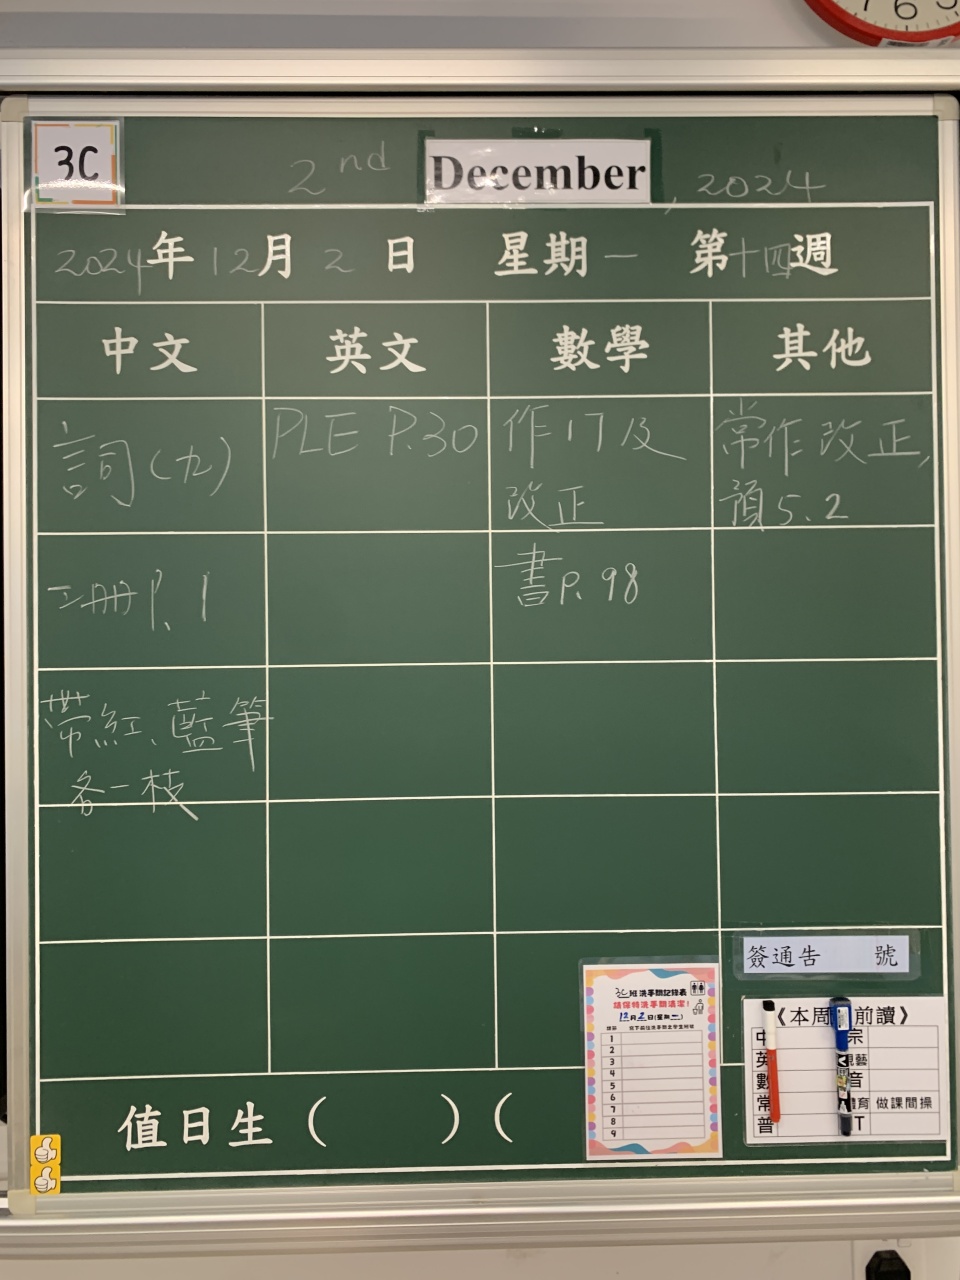 3C
2nd December, 2024
2024年12月2日 星期一 第十四週
中文 英文 數學 其他
詞(九)
PLE P.30
作17及
改正
常作改正,
預5.2
工冊P.1
書P.98
帶紅、藍筆
各一枝
簽通告 號
3C班洗手間記錄表
請保持洗手間清潔!
12月2日(星期一)
1
2
3
4
5
6
7
8
9
《本周 前讀》
中 宗
英 視藝
數 音
常 體育 做課間操
普 T
值日生( )(
6